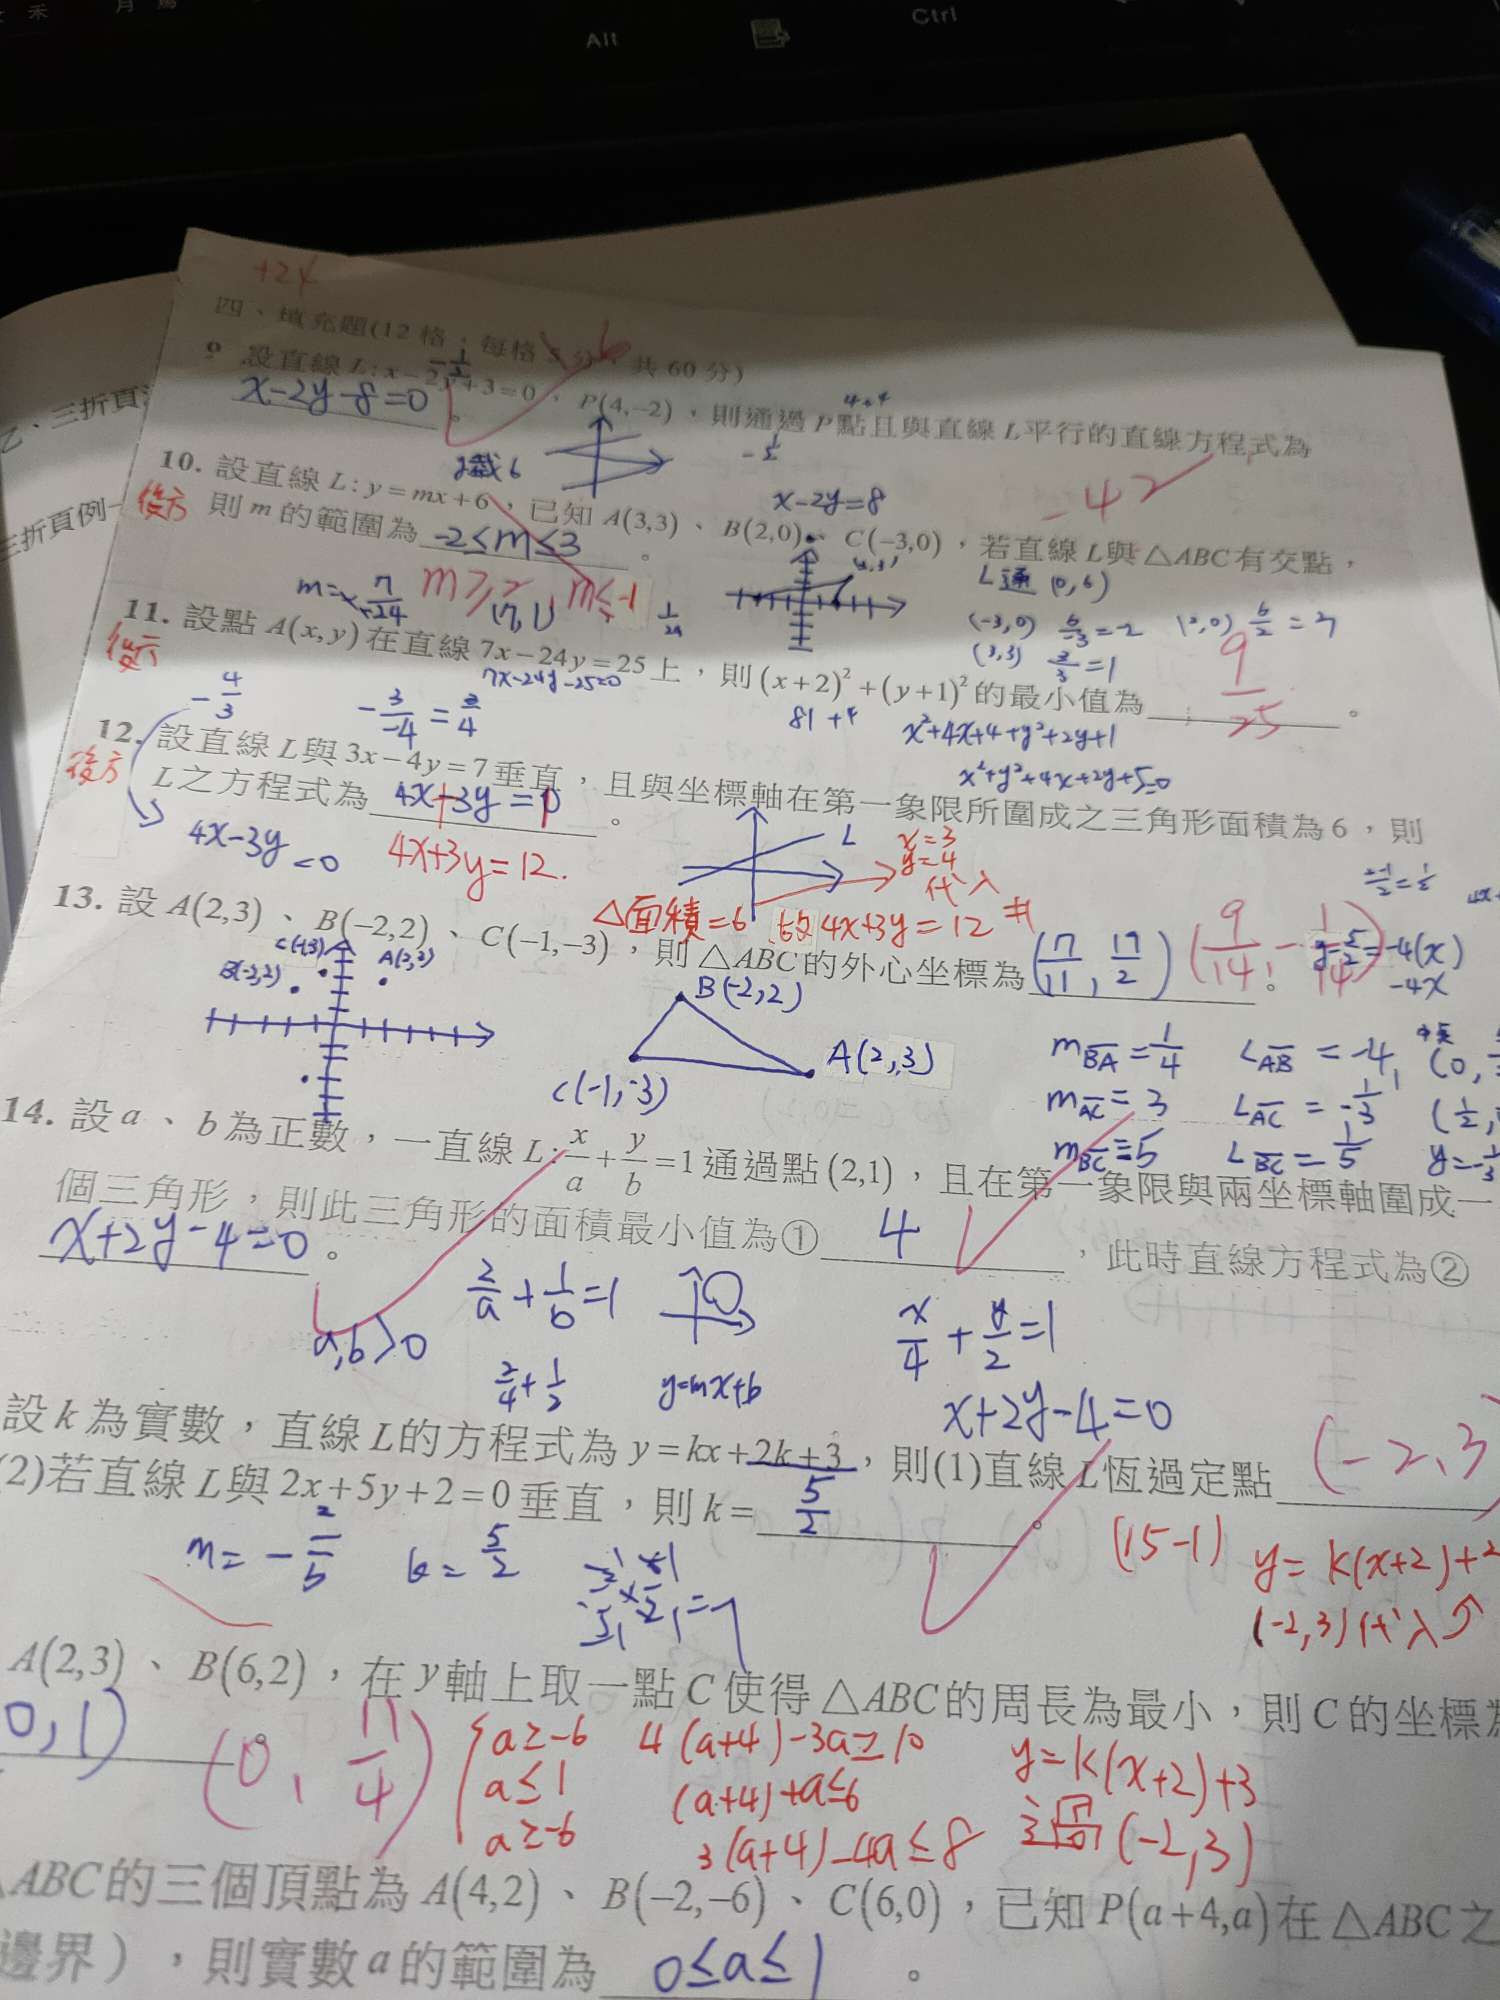 Alt
Ctrl
+24
四、填充題(12格,每格5分,共60分)
6
乙、三折頁
三折頁例
9. 設直線L: x-2y+3=0,P(4,-2),則通過P點且與直線L平行的直線方程式為
x-2y-8=0。
x-2y=8
-42
10. 設直線L: y=mx+6,已知A(3,3)、B(2,0)、C(-3,0),若直線L與△ABC有交點,
則m的範圍為 -2≤m≤3。
m≤-1
L通(0,6)
(-3,0) 6/-3=-2
(3,3) 3/3=1
11. 設點A(x,y)在直線7x-24y=25上,則(x+2)²+(y+1)²的最小值為。
9/25
7x-24y-25=0
81+4
x²+4x+4+y²+2y+1
x²+y²+4x+2y+5=0
-4/3
-3/-4=3/4
12. 設直線L與3x-4y=7垂直,且與坐標軸在第一象限所圍成之三角形面積為6,則
L之方程式為。
4x-3y=0
4x+3y=12.
L
x=3
y=4
代入
△面積=6 故4x+3y=12#
13. 設A(2,3)、B(-2,2)、C(-1,-3),則△ABC的外心坐標為。
B(-2,2)
A(2,3)
C(-1,-3)
m BA=1/4 L AB=-4
m AC=3 L AC=-1/3
m BC=-5 L BC=1/5
14. 設a、b為正數,一直線L: x/a+y/b=1通過點(2,1),且在第一象限與兩坐標軸圍成一
個三角形,則此三角形的面積最小值為① 4,此時直線方程式為②
x+2y-4=0。
a,b>0
2/a+1/b=1
2/4+1/2
y=mx+b
x/4+y/2=1
x+2y-4=0
設k為實數,直線L的方程式為y=kx+2k+3,則(1)直線L恆過定點
(-2,3)
(2)若直線L與2x+5y+2=0垂直,則k= 5/2。
(15-1)
y=k(x+2)+
(-2,3)代入
A(2,3)、B(6,2),在y軸上取一點C使得△ABC的周長為最小,則C的坐標為
0,1)
(0, 11/4)
a≥-6
a≤1
a≥-6
4(a+4)-3a≥10
(a+4)+a≤6
3(a+4)-4a≤8
y=k(x+2)+3
過(-2,3)
△ABC的三個頂點為A(4,2)、B(-2,-6)、C(6,0),已知P(a+4,a)在△ABC之
邊界),則實數a的範圍為 0≤a≤1。